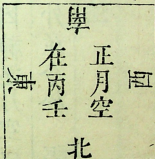 正月空
在丙壬
東
北